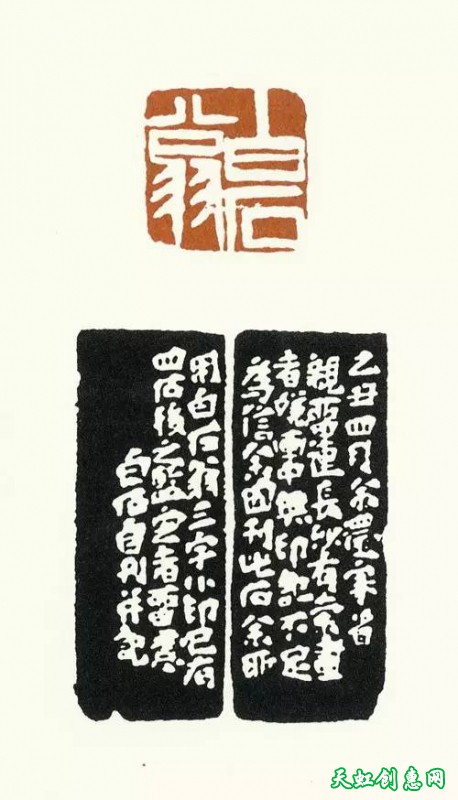 白石
翁
乙丑四月余還家省
親留連長沙有索畫
者嫌畫無印恐不足
為信余因刊此石余所
用白石翁三字小印已有
四石後之鑒定者留意
白石自刊并記
天虹创惠网